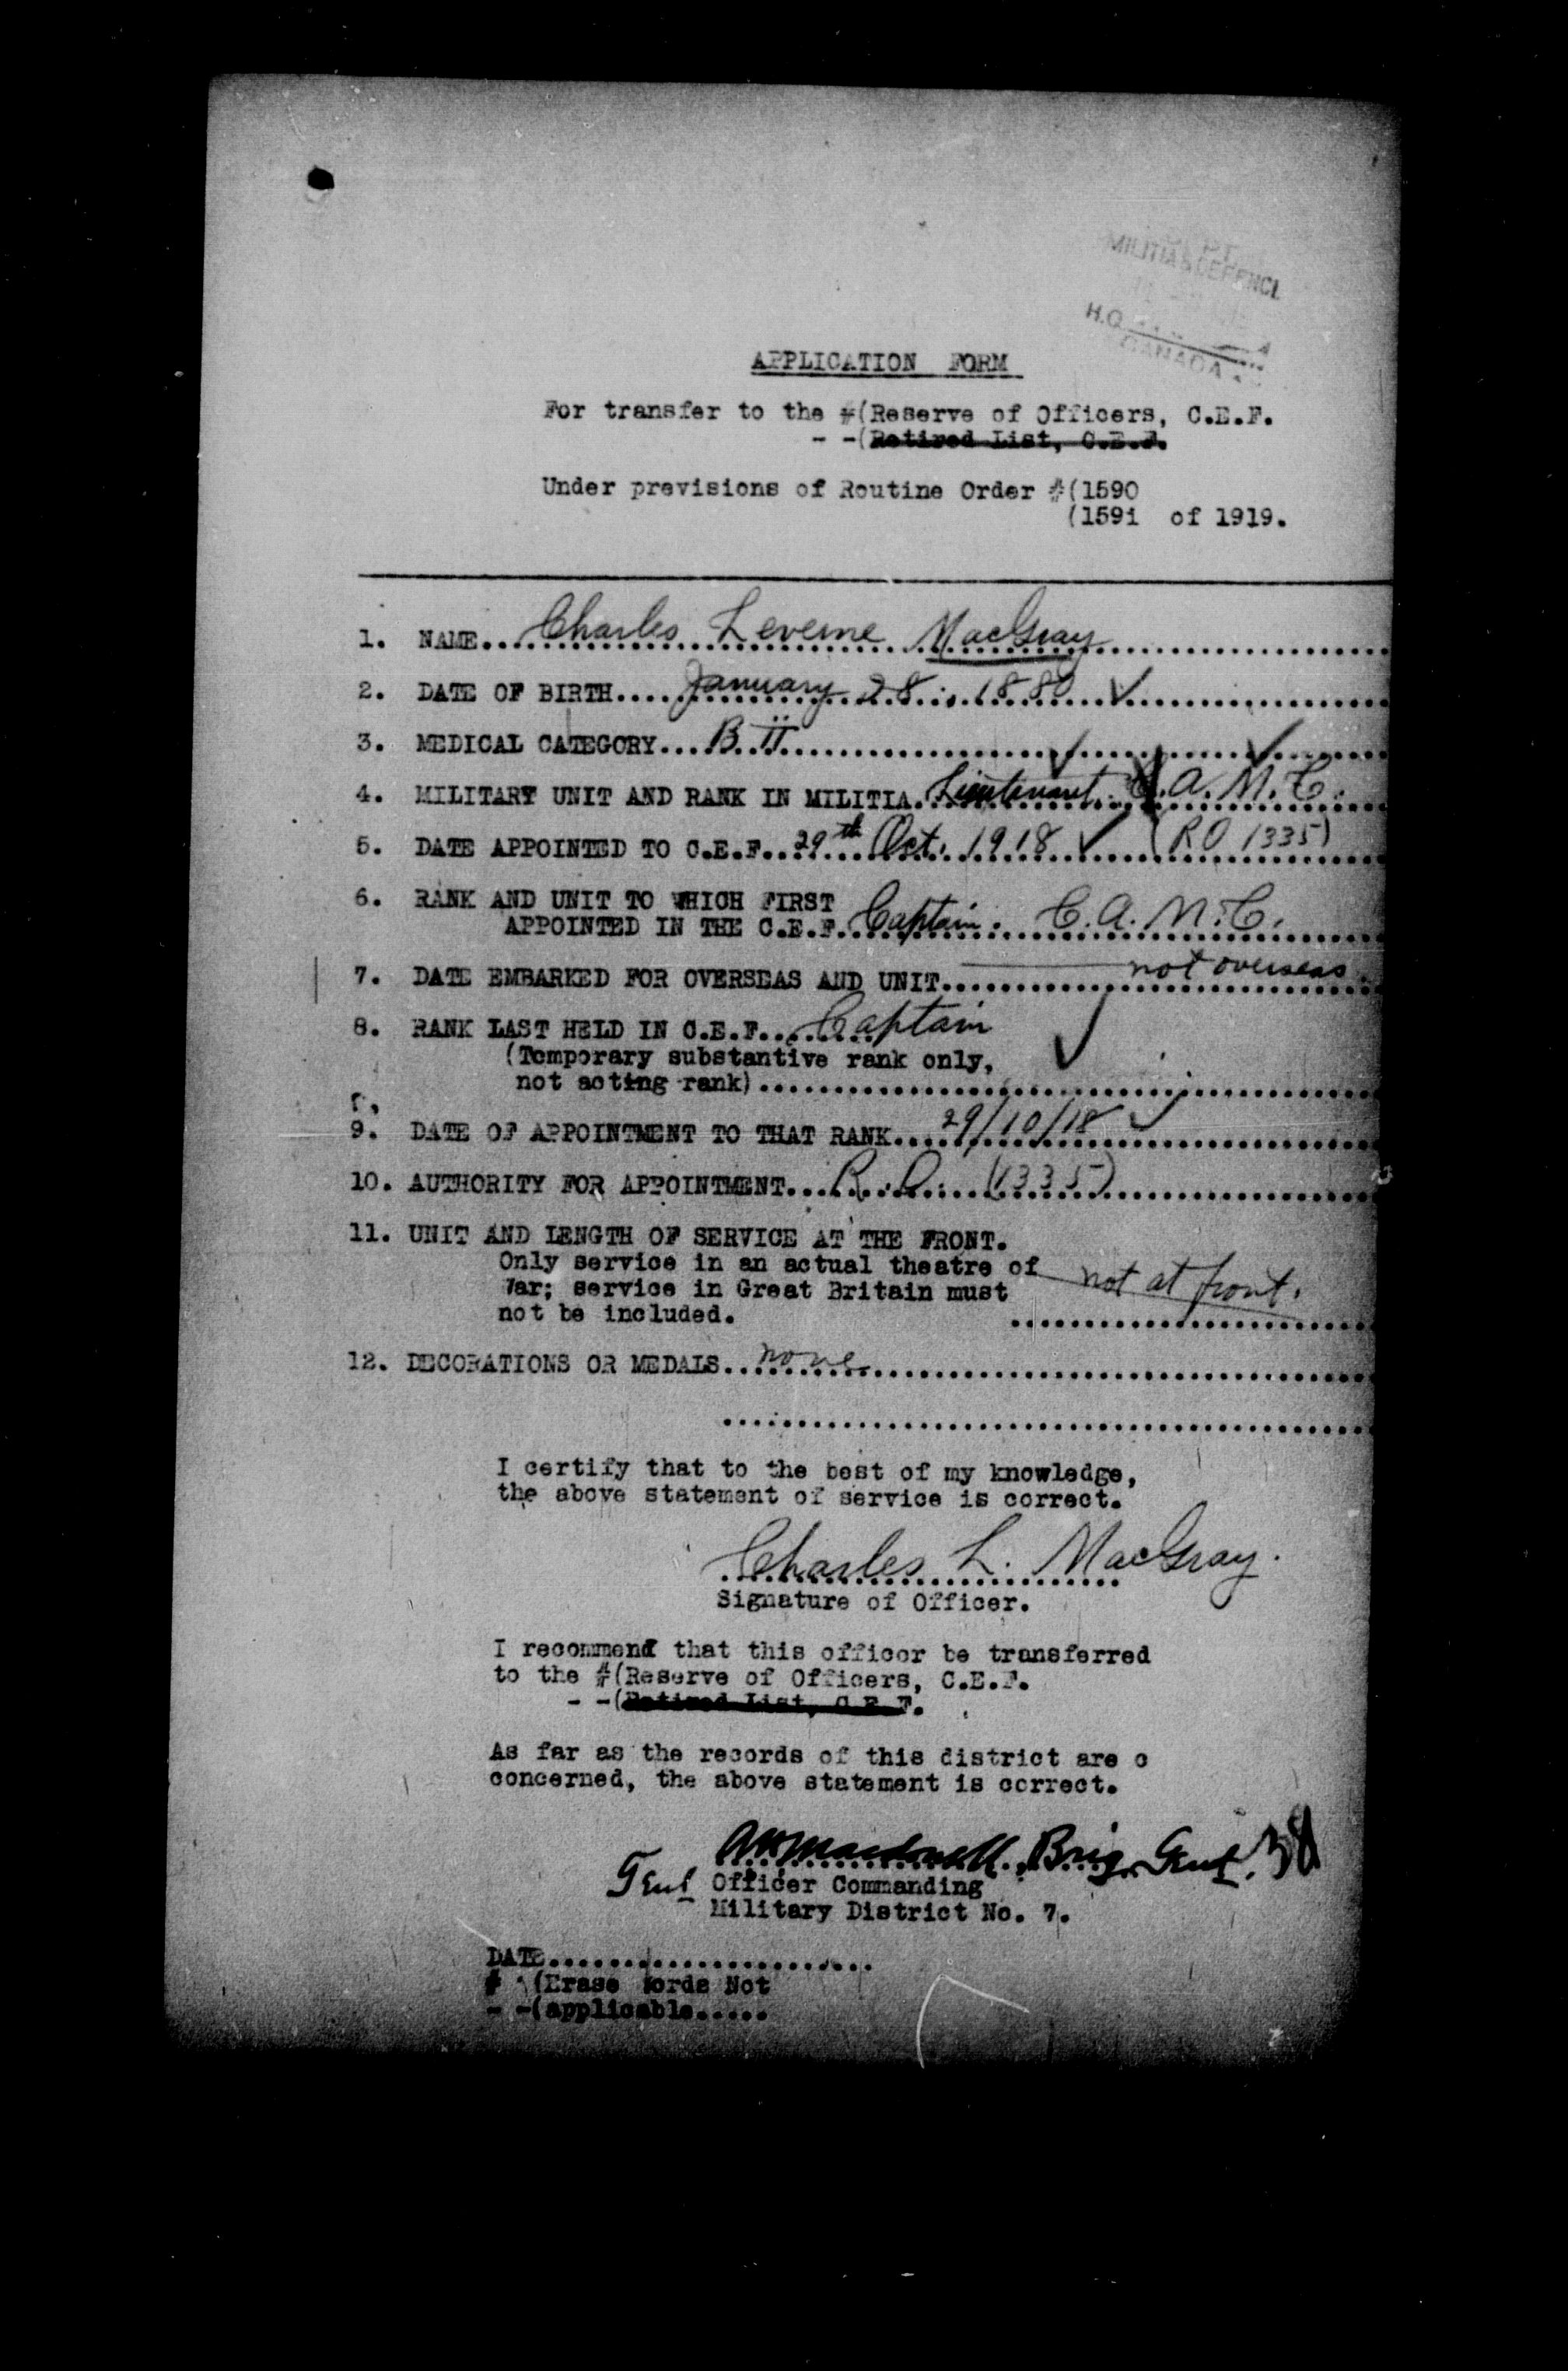 MILITIA & DEFENCE
H.Q.
CANADA
APPLICATION FORM
For transfer to the #(Reserve of Officers, C.E.F.
- -(Retired List, C.E.F.
Under previsions of Routine Order #(1590
(1591 of 1919.
1. NAME....Charles Leverne MacGray
2. DATE OF BIRTH....January 28, 1880 ✓
3. MEDICAL CATEGORY...B II
4. MILITARY UNIT AND RANK IN MILITIA. Lieutenant. C.A.M.C.
5. DATE APPOINTED TO C.E.F...29th Oct. 1918 ✓ (RO 1335)
6. RANK AND UNIT TO WHICH FIRST
APPOINTED IN THE C.E.F..Captain. C.A.M.C.
7. DATE EMBARKED FOR OVERSEAS AND UNIT....not overseas.
8. RANK LAST HELD IN C.E.F....Captain ✓
(Temporary substantive rank only,
not acting rank)....
9. DATE OF APPOINTMENT TO THAT RANK...29/10/18 ✓
10. AUTHORITY FOR APPOINTMENT...R.O. (1335)
11. UNIT AND LENGTH OF SERVICE AT THE FRONT.
Only service in an actual theatre of
War; service in Great Britain must not at front.
not be included.
12. DECORATIONS OR MEDALS...none
I certify that to the best of my knowledge,
the above statement of service is correct.
Charles L. MacGray.
Signature of Officer.
I recommend that this officer be transferred
to the #(Reserve of Officers, C.E.F.
- -(Retired List, C.E.F.
As far as the records of this district are c
concerned, the above statement is correct.
Brig. Genl.
Officer Commanding
Military District No. 7.
DATE......................
# (Erase Words Not
- -(applicable.....